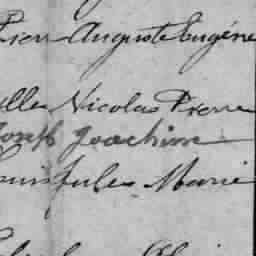 Pierre Auguste Eugéne
elle Nicolas Pierre
Joseph Joachim
Louis Jules Marie